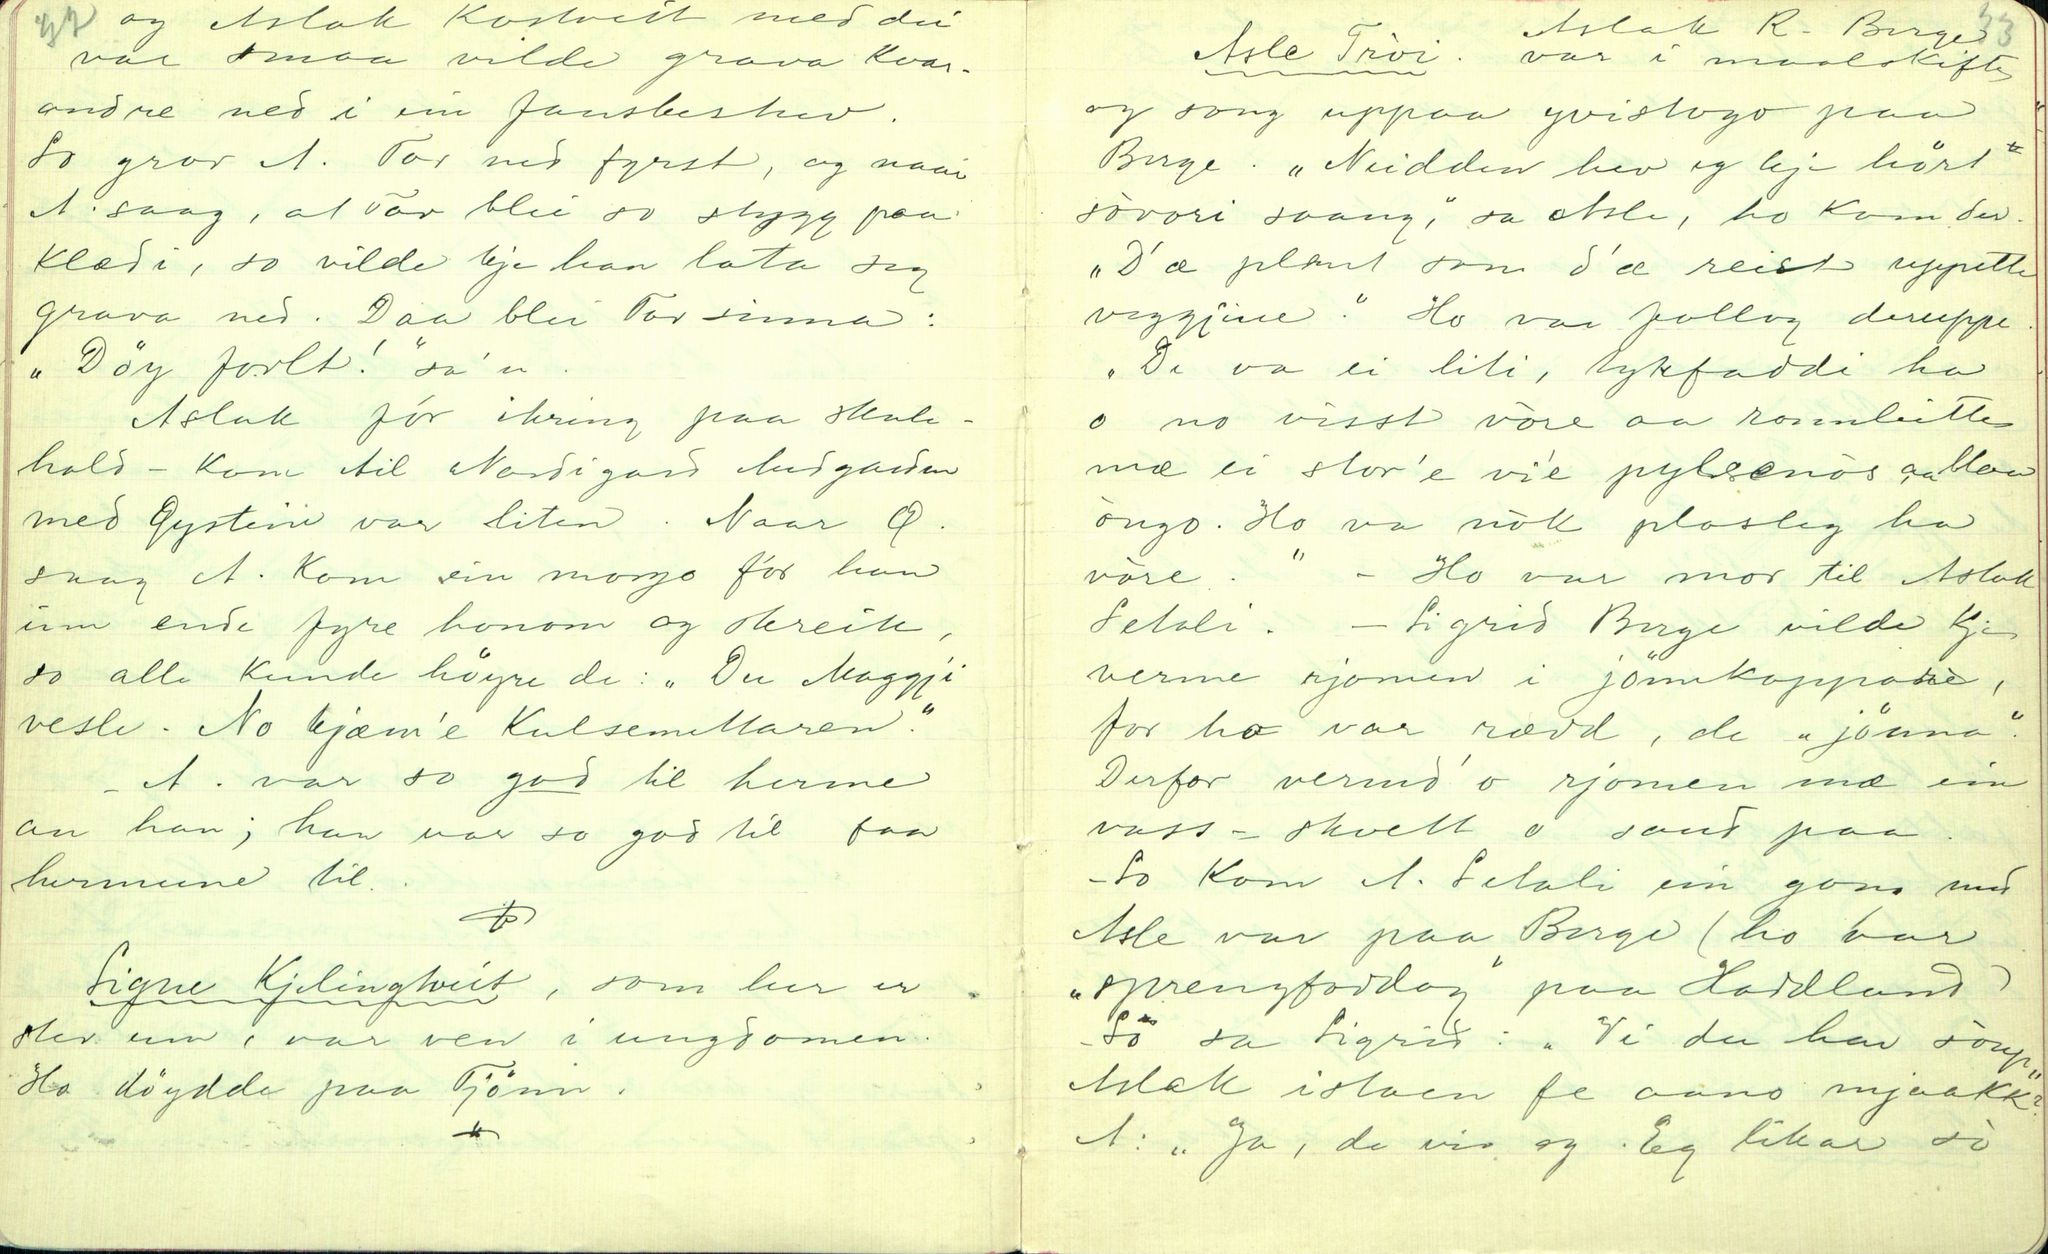 32
og Aslak Kostveit med dei
var smaa vilde grava kvar-
andre ned i ein fonsbeskev.
So grov A. Tor ned fyrst, og naar
A. saag, at Tor blei so stygg paa
klædi, so vilde kje han lata seg
grava ned. Daa blei Tor sinna:
„Döy forlt!" sa'n.
Aslak fór ikring paa skule-
hald – kom til Nordigard Midgarden
med Öystein var liten. Naar Ö.
saag A. kom ein morgo fór han
inn ende fyre honom og skreik,
so alle kunde höyre de: „Du Maggji
vesle. No kjæm'e Kulsemettaren."
– A. var so god til herme
an han; han var so god til faa
hermune til.
Signe Kjelingtveit, som her er
stev um, var ven i ungdomen.
Ho döydde paa Tjönn.
33
Aslak R. Berge
Asle Tròi. var i maalskifte
og song uppaa yvistogo paa
Berge. „Neidden hev eg kje hört
sòvori saang," sa Asle, ho kom der.
„D'æ plent som d'æ reist uppette
veggjine." Ho var fallog deruppe.
„De va ei liti, tykfaddi ha
o no visst vòre aa ronnleitte
mæ ei stor'e vi'e pylsenòs aa blaa
òugo. Ho va nòk plasleg ha
vòre." – Ho var mor til Aslak
Setali. – Sigrid Berge vilde kje
verme rjomen i jönnkoppane,
for ho var rædd, de „jönna".
Derfor vermd'o rjomen mæ ein
vass-skvett o saud paa.
– So kom A. Setali ein gong med
Asle var paa Berge (ho var
„sprengfoddog" paa Haddland)
– So sa Sigrid: „Vi du hav sòup,
Aslak istaen fe aano mjaakk?"
A: „Ja, de vis eg. Eg likar sò